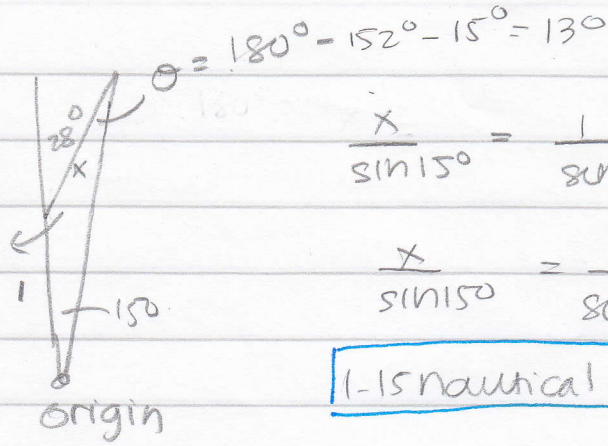 θ = 180° - 152° - 15° = 13°
28°
x
x / sin 15° = 1 /
x / sin 15° =
1
15°
1.15 nautical
origin